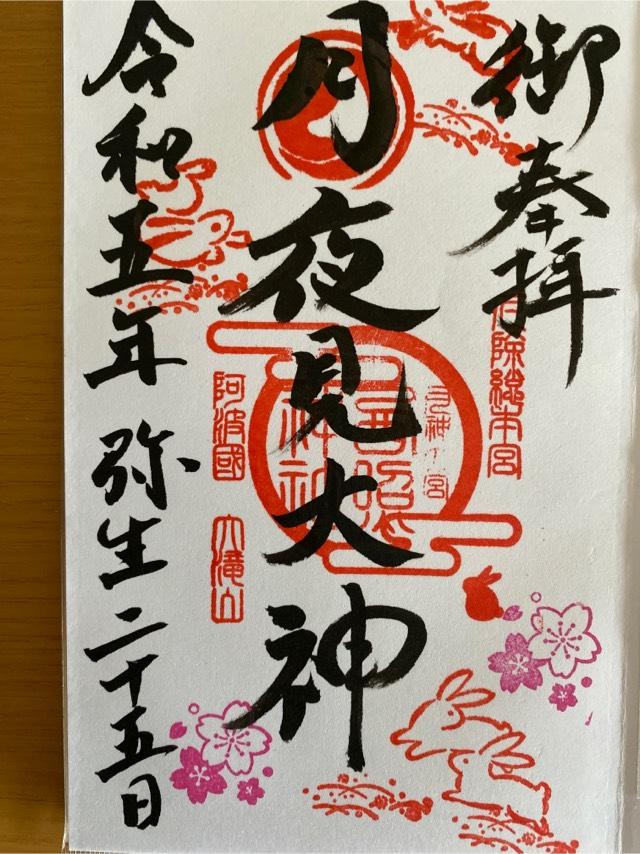 御奉拝
月夜見大神
令和五年 弥生 二十五日
月神ノ宮
阿波國 大滝山